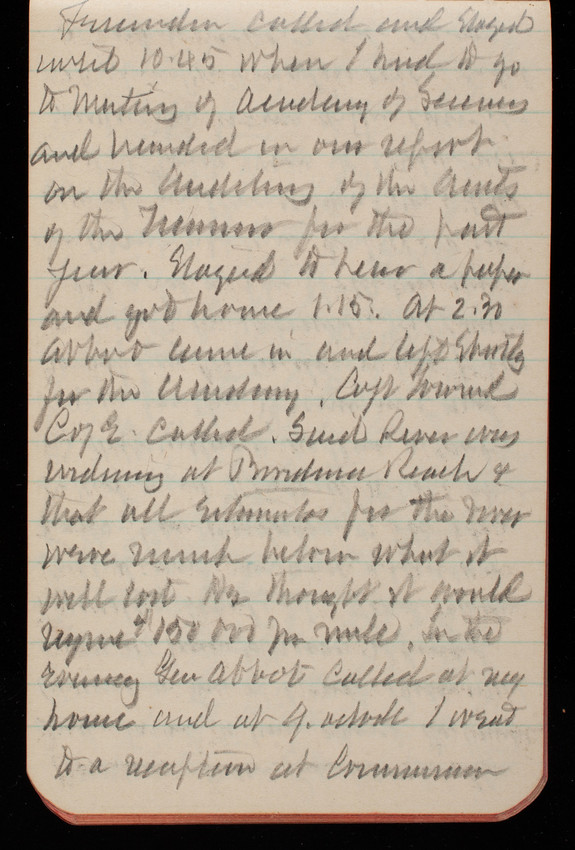 called and Stayed
until 10.45 when I had to go
to Meeting of Academy of Sciences
and handed in our report
on the Auditing of the Accts
of the Treasurer for the past
year. Stayed to hear a paper
and got home 1.15. At 2.30
Abbot came in and left Shortly
for the Academy. Capt
Cof E. called. Said River was
widening at Providence Reach &
that all Estimates for the river
were much below what it
will cost He thought it would
require $150 000 per mile. In the
Evening Gen Abbot called at my
home and at 9. oclock I went
to a reception at